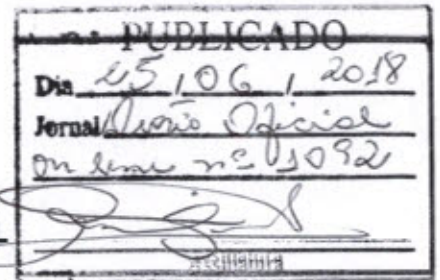 PUBLICADO
Dia 25 / 06 / 2018
Jornal Diário Oficial
on line nº 1092